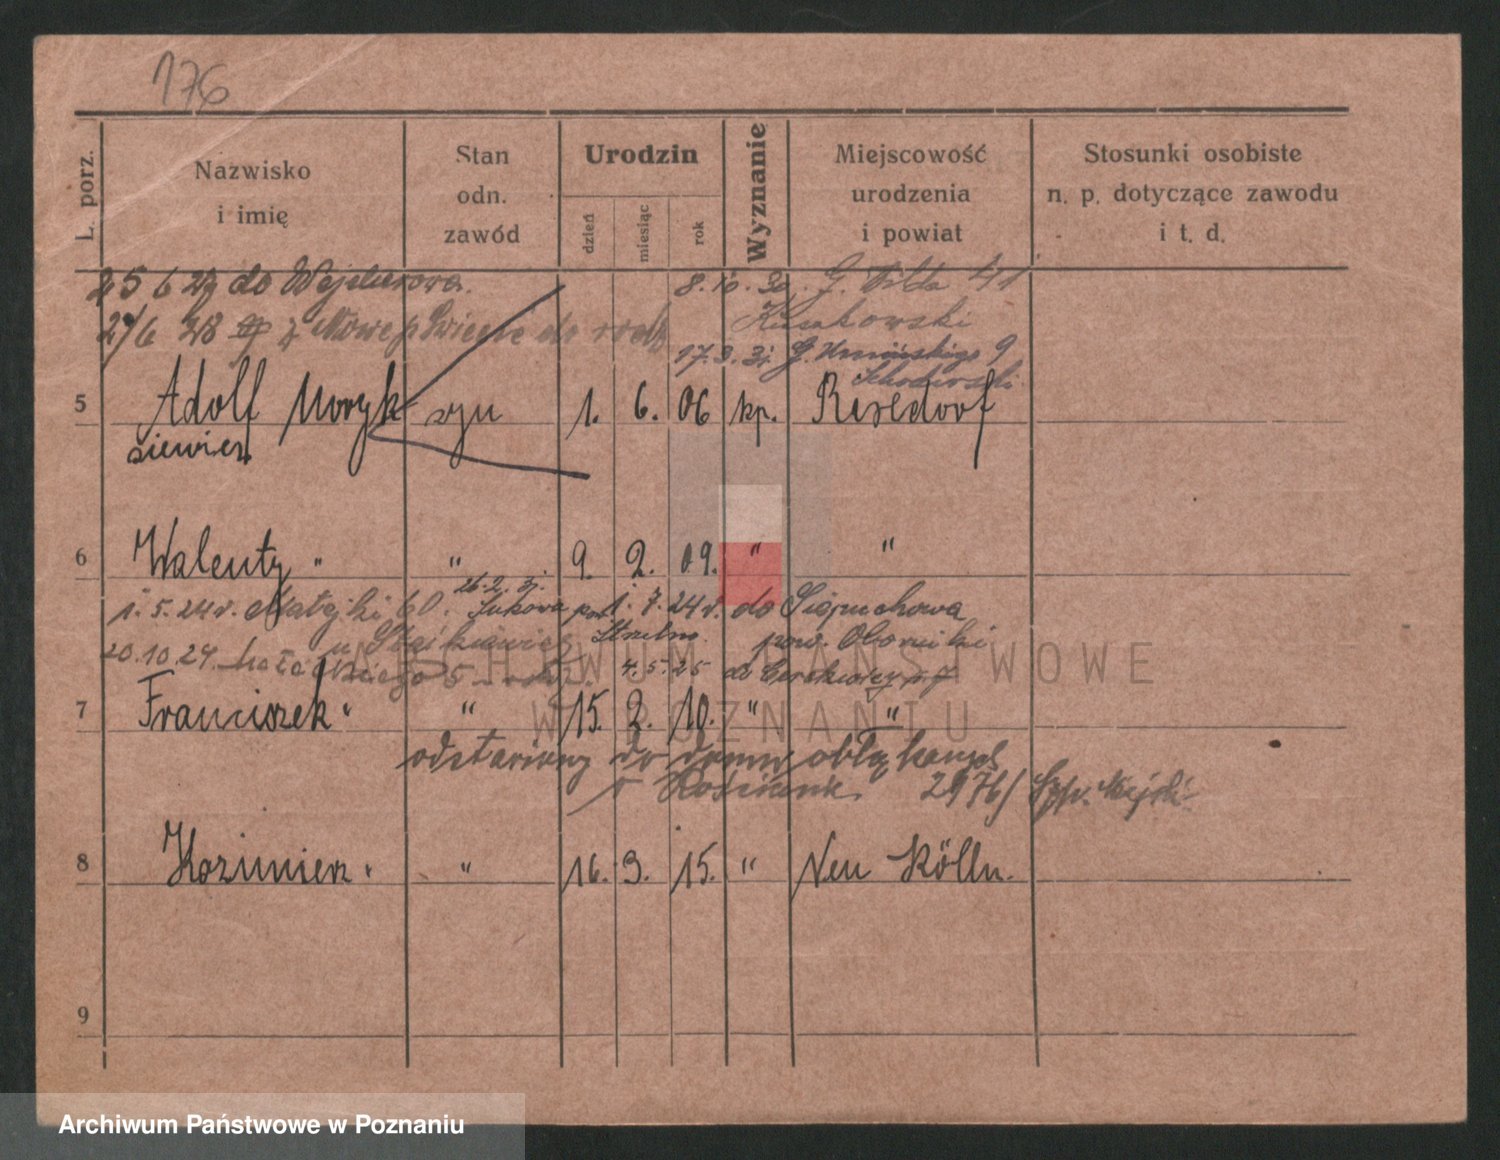 176
L. porz.
Nazwisko
i imię
Stan
odn.
zawód
Urodzin
dzień
miesiąc
rok
Wyznanie
Miejscowość
urodzenia
i powiat
Stosunki osobiste
n. p. dotyczące zawodu
i t. d.
25 6 27 do Wejherowa.
8. 10. 30. G. Wilda 41
27/6 28 z Nowe p Świecie do
17. 3. 31. G. Umińskiego 9
5 Adolf Moryk syn 1. 6. 06 kp.
siewicz
6 Walenty " " 9. 2. 09. " "
1. 5. 24 r. Matejki 60. 26. 2. 31. 1. 7. 24 r. do
Strzelno. pow. Oborniki
20. 10. 24. 5 4. 5. 25 do
7 Franciszek " " 15. 2. 10. " "
odstawiony do domu obłąkanych
w Kościanie 2976/ Szp. Miejski
8 Kazimierz " " 16. 3. 15. " Neu Kölln.
9
ARCHIWUM PAŃSTWOWE
W POZNANIU
Archiwum Państwowe w Poznaniu